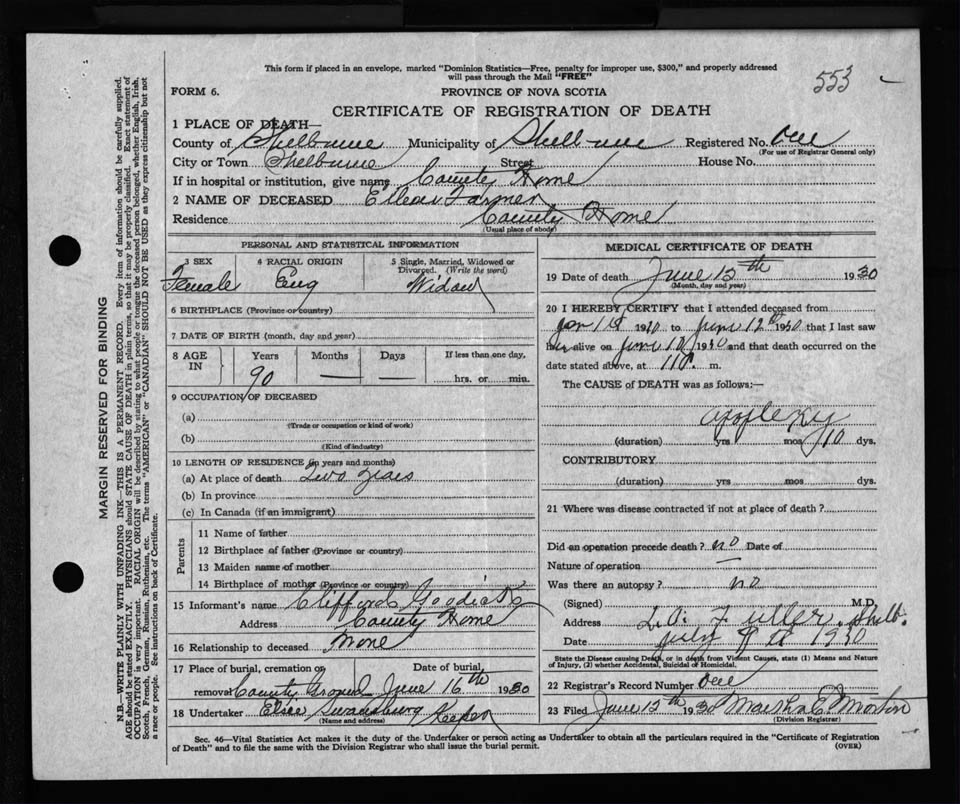 This form if placed in an envelope, marked "Dominion Statistics—Free, penalty for improper use, $300," and properly addressed
will pass through the Mail "FREE"
553
FORM 6.
PROVINCE OF NOVA SCOTIA
CERTIFICATE OF REGISTRATION OF DEATH
1 PLACE OF DEATH—
County of Shelburne Municipality of Shelburne Registered No. One
(For use of Registrar General only)
City or Town Shelburne Street House No.
If in hospital or institution, give name County Home
2 NAME OF DECEASED Farmer
Residence County Home
(Usual place of abode)
PERSONAL AND STATISTICAL INFORMATION
3 SEX 4 RACIAL ORIGIN 5 Single, Married, Widowed or
Divorced. (Write the word)
Female Eng Widow
6 BIRTHPLACE (Province or country)
7 DATE OF BIRTH (month, day and year)
8 AGE IN Years Months Days If less than one day,
90 — — hrs. or min.
9 OCCUPATION OF DECEASED
(a)
(Trade or occupation or kind of work)
(b)
(Kind of industry)
10 LENGTH OF RESIDENCE (in years and months)
(a) At place of death Two years
(b) In province
(c) In Canada (if an immigrant)
Parents
11 Name of father
12 Birthplace of father (Province or country)
13 Maiden name of mother
14 Birthplace of mother (Province or country)
15 Informant's name Clifford
Address County Home
16 Relationship to deceased None
17 Place of burial, cremation or Date of burial,
removal County Ground June 16th 1930
18 Undertaker Swansburg Keeper
(Name and address)
MEDICAL CERTIFICATE OF DEATH
19 Date of death June 15th 1930
(Month, day and year)
20 I HEREBY CERTIFY that I attended deceased from
1930 to June 12th 1930 that I last saw
her alive on June 1930 and that death occurred on the
date stated above, at m.
The CAUSE of DEATH was as follows:—
apoplexy
(duration) yrs mos 10 dys.
CONTRIBUTORY
(duration) yrs mos dys.
21 Where was disease contracted if not at place of death?
Did an operation precede death? no Date of
Nature of operation —
Was there an autopsy? no
(Signed) M.D.
Address Fuller. Shelb.
Date July 1930
State the Disease causing Death, or in death from Violent Causes, state (1) Means and Nature
of Injury, (2) whether Accidental, Suicidal or Homicidal.
22 Registrar's Record Number One
23 Filed June 15th 1930 Morton
(Division Registrar)
Sec. 46—Vital Statistics Act makes it the duty of the Undertaker or person acting as Undertaker to obtain all the particulars required in the "Certificate of Registration
of Death" and to file the same with the Division Registrar who shall issue the burial permit.
(OVER)
MARGIN RESERVED FOR BINDING
N.B.—WRITE PLAINLY WITH UNFADING INK—THIS IS A PERMANENT RECORD. Every item of information should be carefully supplied.
AGE should be stated EXACTLY. PHYSICIANS should STATE CAUSE OF DEATH in plain terms, so that it may be properly classified. Exact statement of
OCCUPATION is very important. RACIAL ORIGIN will be described by stating to what people or tongue the deceased person belonged, whether English, Irish,
Scotch, French, German, Russian, Ruthenian, etc. The terms "AMERICAN" or "CANADIAN" SHOULD NOT BE USED as they express citizenship but not
a race or people. See instructions on back of Certificate.